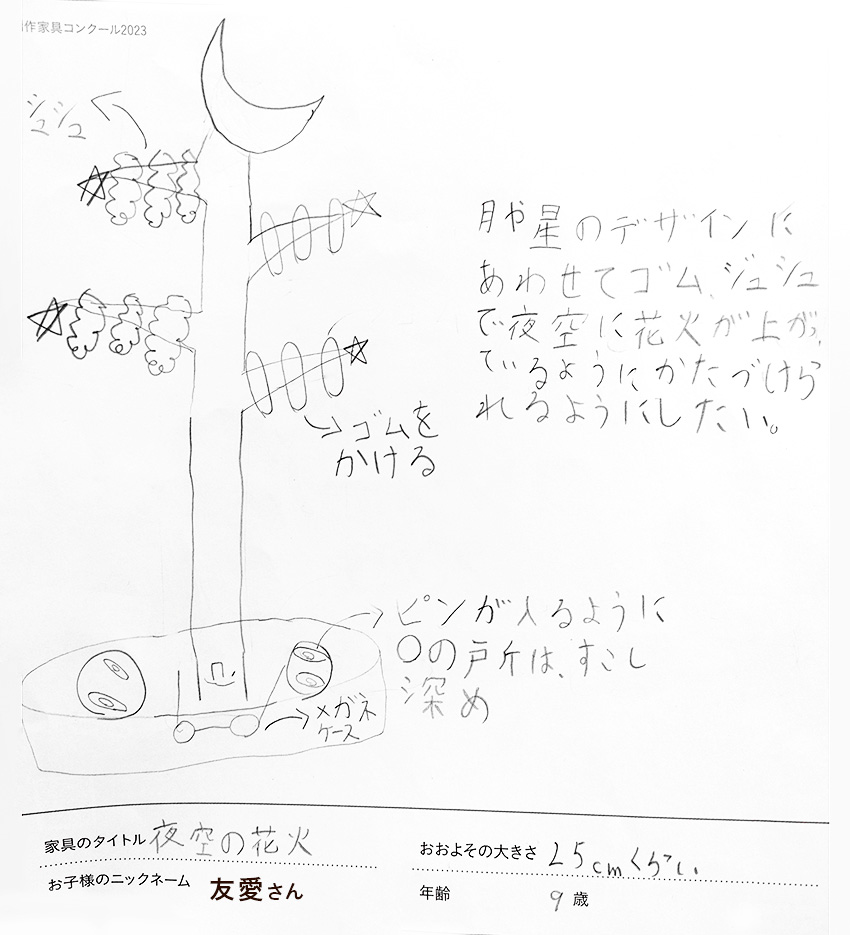 作家具コンクール2023
シュシュ
月や星のデザインに
あわせてゴム、シュシュ
で夜空に花火が上がっ
ているようにかたづけら
れるようにしたい。
ゴムを
かける
ピンが入るように
○の戸斤は、すこし
深め
メガネ
ケース
家具のタイトル 夜空の花火
おおよその大きさ 25cmくらい
お子様のニックネーム 友愛さん
年齢 9歳